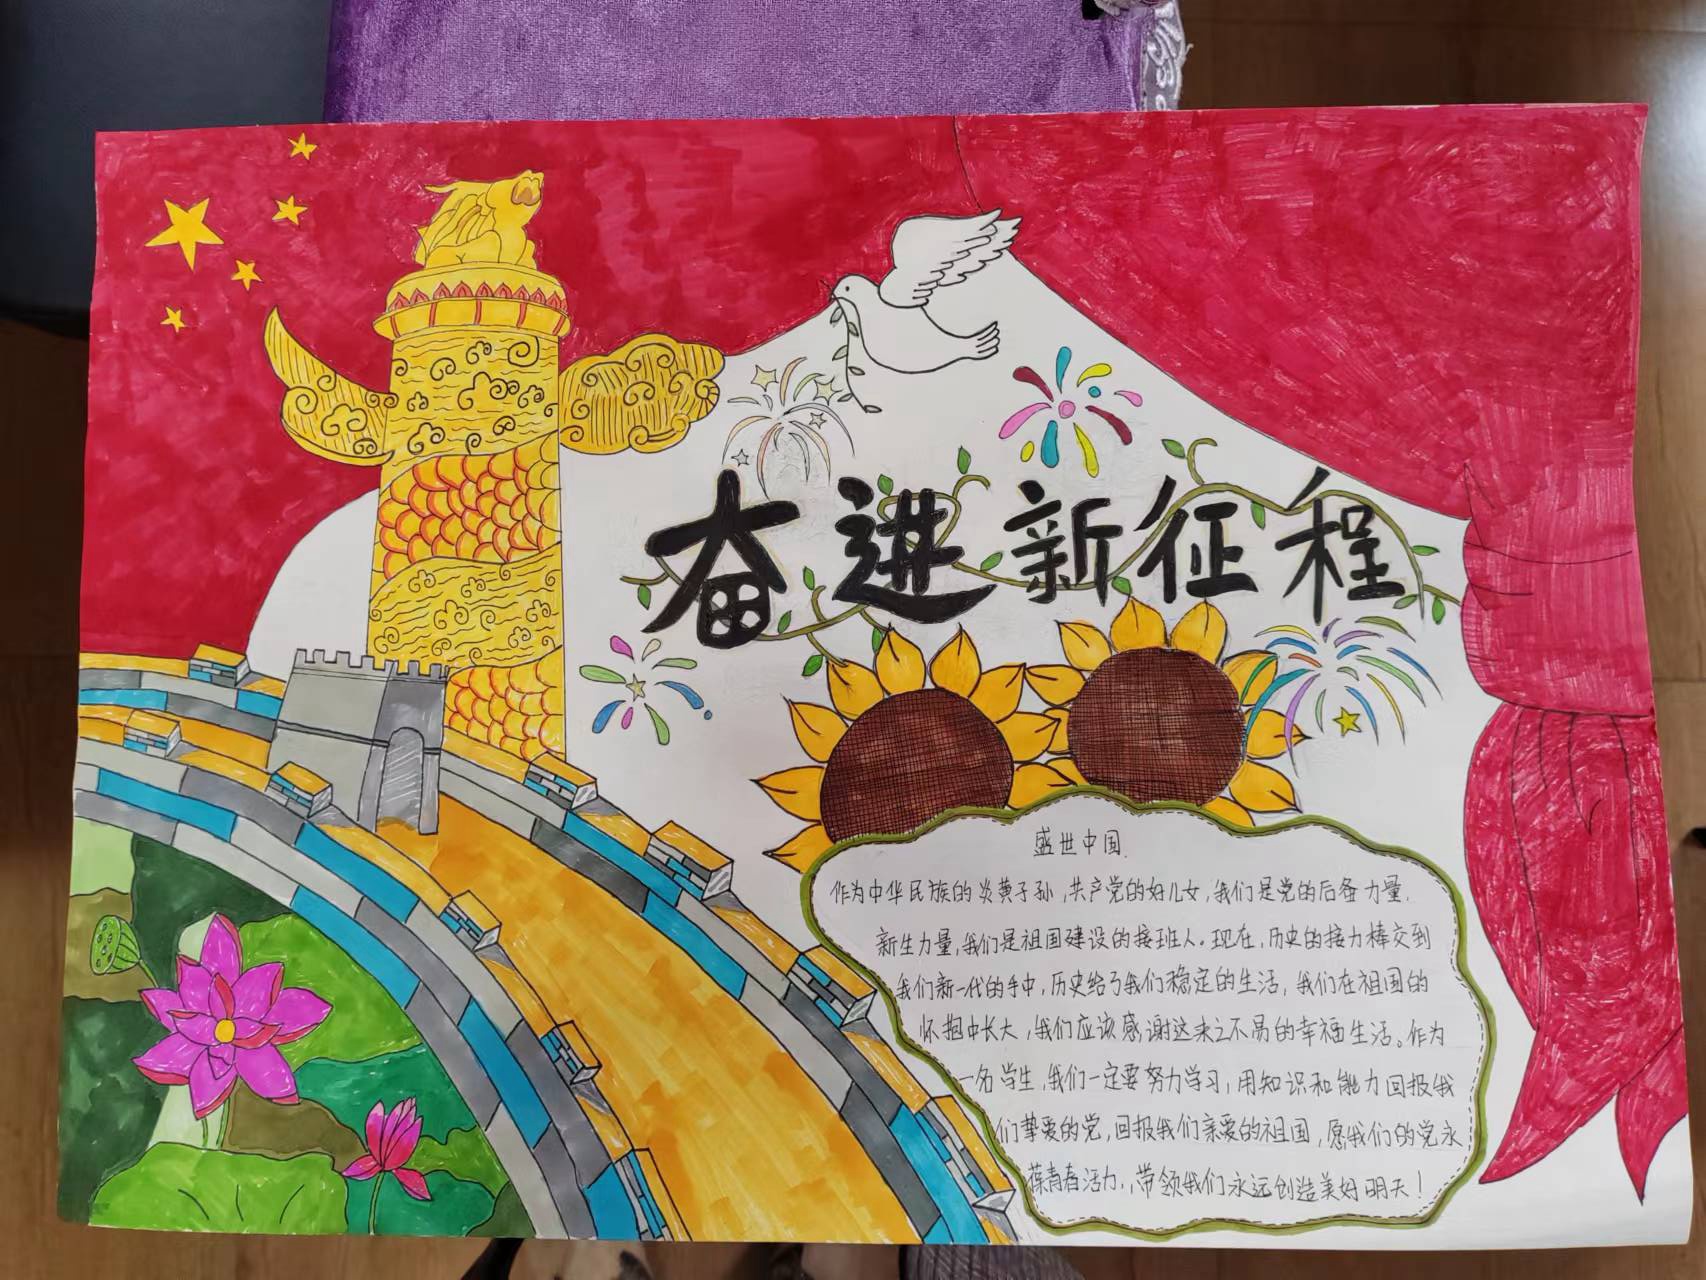 奋进新征程
盛世中国.
作为中华民族的炎黄子孙,共产党的好儿女,我们是党的后备力量.
新生力量,我们是祖国建设的接班人。现在,历史的接力棒交到
我们新一代的手中,历史给了我们稳定的生活,我们在祖国的
怀抱中长大,我们应该感谢这来之不易的幸福生活。作为
一名学生,我们一定要努力学习,用知识和能力回报我
们挚爱的党,回报我们亲爱的祖国,愿我们的党永
葆青春活力,带领我们永远创造美好明天!